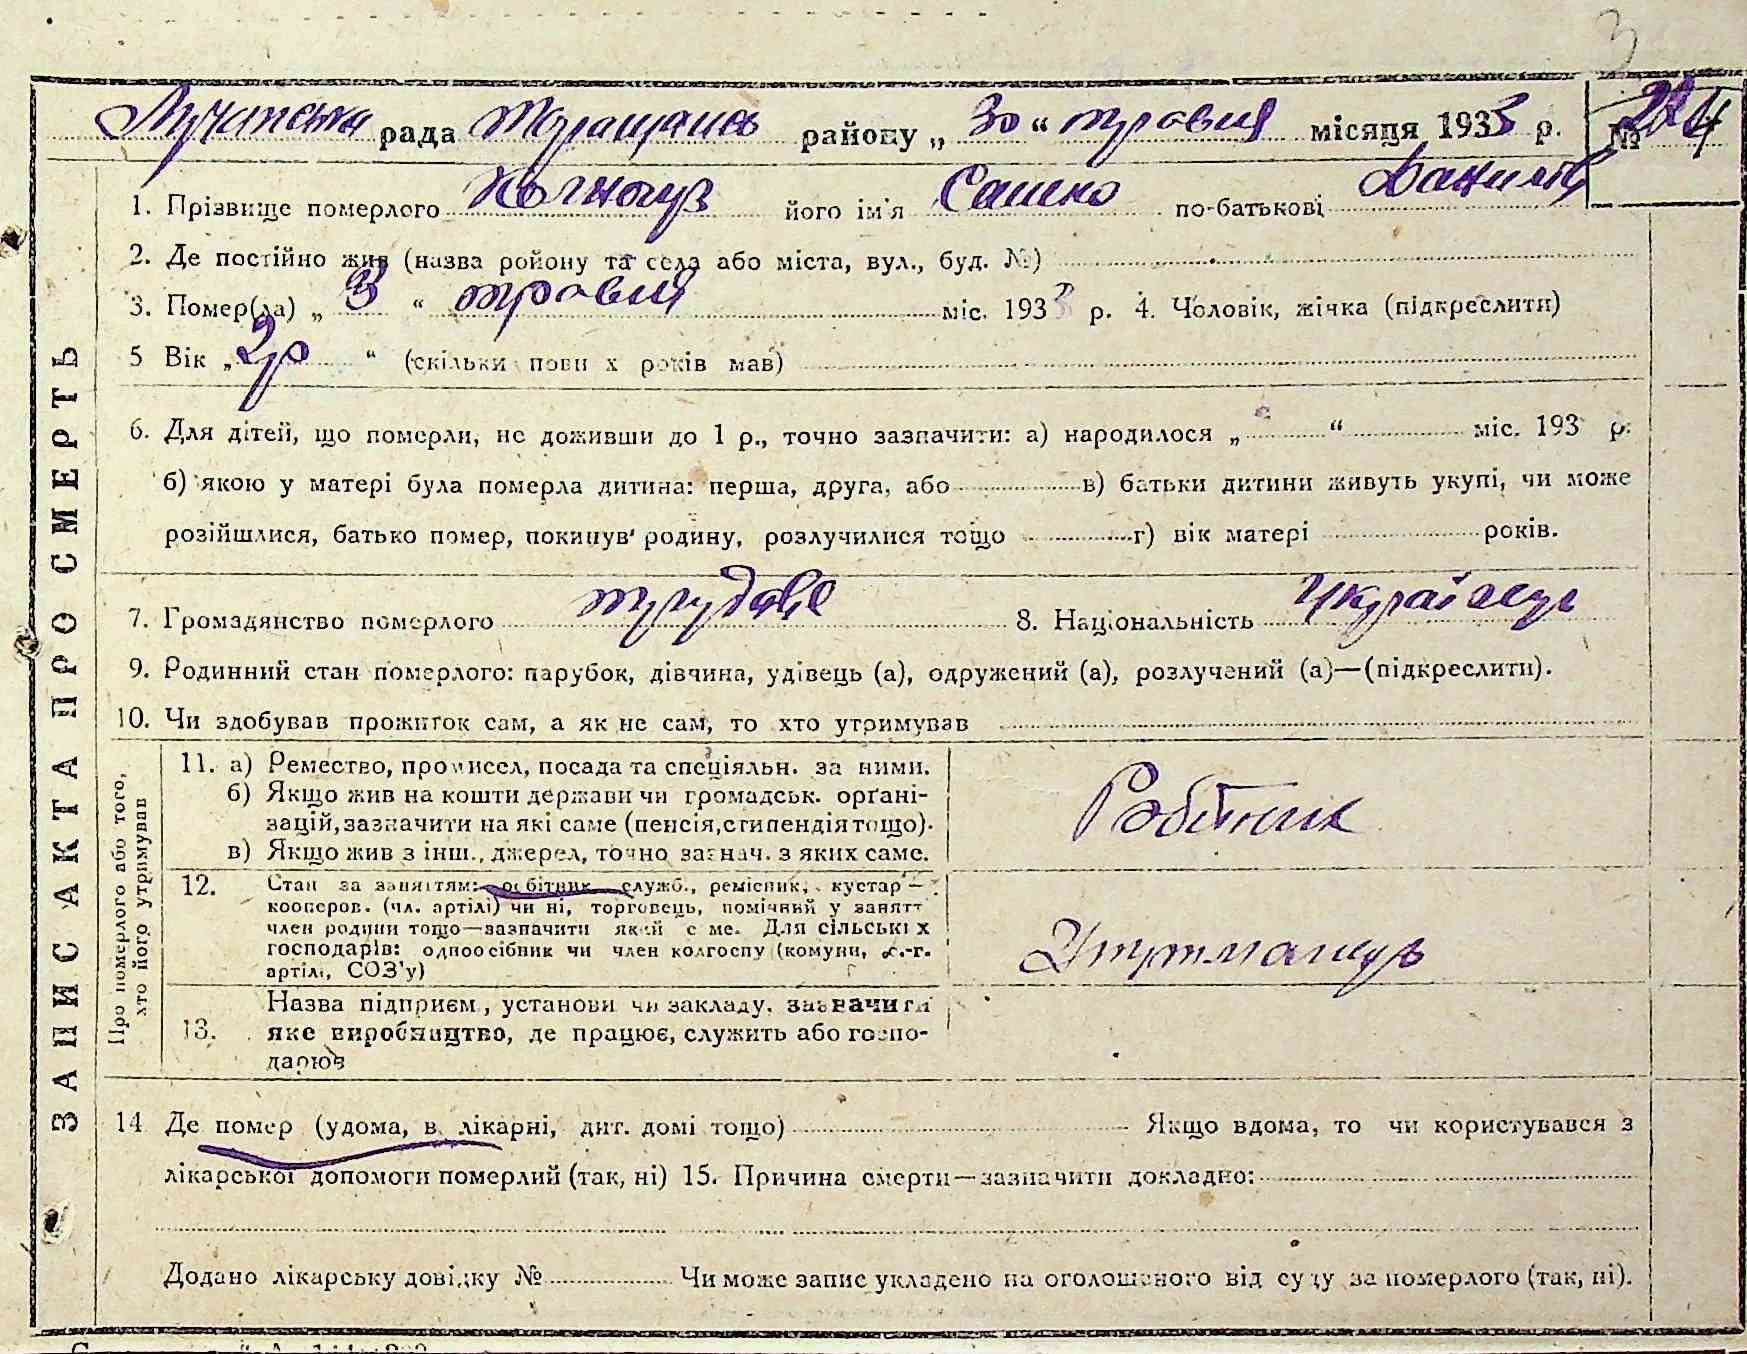 3
Лучанська рада Таращансь району „ 30 “ травня місяця 1933 р. №
1. Прізвище померлого його ім'я Сашко по-батькові Данилов
2. Де постійно жив (назва ройону та села або міста, вул., буд. №)
3. Помер(ла) „ 3 “ травня міс. 1933 р. 4. Чоловік, жінка (підкреслити)
5 Вік „ 2 р “ (скільки повн х років мав)
6. Для дітей, що померли, не доживши до 1 р., точно зазначити: а) народилося „ “ міс. 193 р.
б) якою у матері була померла дитина: перша, друга, або в) батьки дитини живуть укупі, чи може
розійшлися, батько помер, покинув родину, розлучилися тощо г) вік матері років.
7. Громадянство померлого трудове 8. Національність Українець
9. Родинний стан померлого: парубок, дівчина, удівець (а), одружений (а), розлучений (а)—(підкреслити).
10. Чи здобував прожиток сам, а як не сам, то хто утримував
ЗАПИС АКТА ПРО СМЕРТЬ
Про померлого або того,
хто його утримував
11. а) Ремество, промисел, посада та спеціяльн. за ними.
б) Якщо жив на кошти держави чи громадськ. орґані-
зацій, зазначити на які саме (пенсія, стипендія тощо).
в) Якщо жив з інш., джерел, точно зазнач. з яких саме.
Робітник
12. Стан за заняттям: робітник служб., ремісник, кустар —
кооперов. (чл. артілі) чи ні, торговець, помічний у занятт
член родини тощо—зазначити який с ме. Для сільськіх
господарів: одноосібник чи член колгоспу (комуни, с.-г.
артілі, СОЗ'у)
Утриманець
13. Назва підприєм., установи чи закладу, зазначити
яке виробництво, де працює, служить або госпо-
дарює
14 Де помер (удома, в лікарні, дит. домі тощо) Якщо вдома, то чи користувався з
лікарської допомоги померлий (так, ні) 15. Причина смерти—зазначити докладно:
Додано лікарську довідку № Чи може запис укладено на оголошеного від суду за померлого (так, ні).